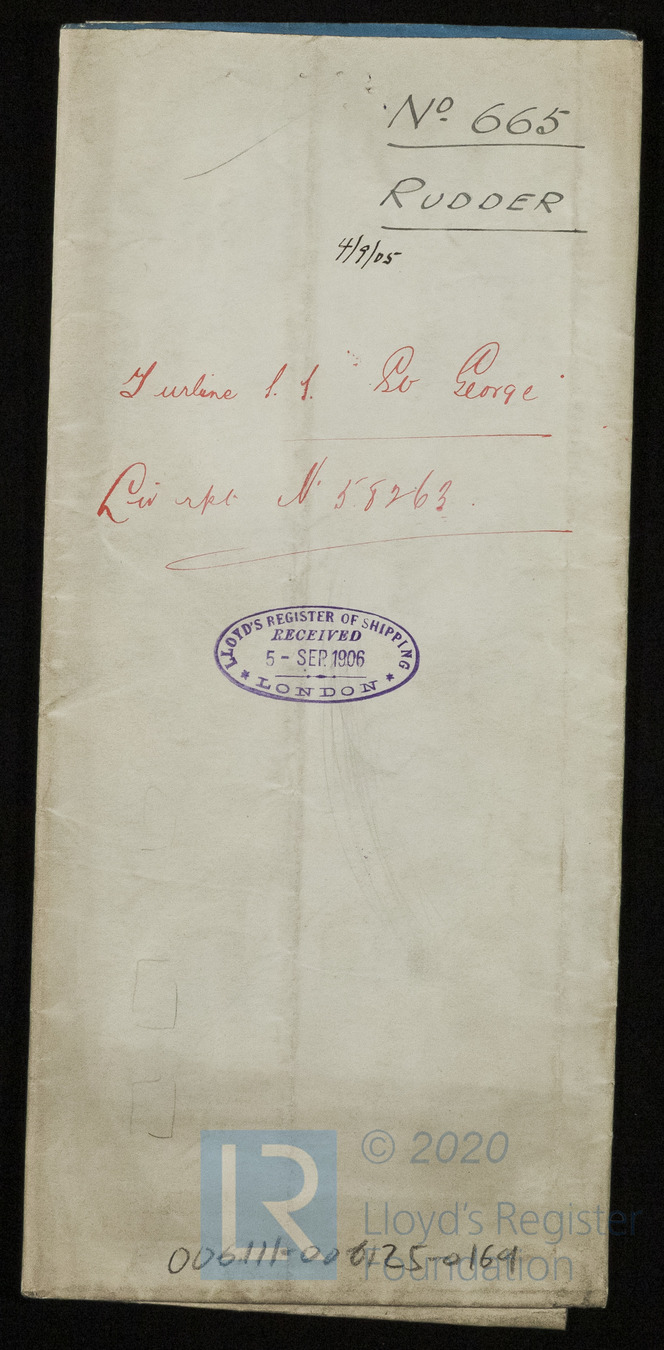 Nº 665
RUDDER
4/9/05
Turbine S.S. "St George"
Liv rpt Nº 58263
LLOYD'S REGISTER OF SHIPPING
RECEIVED
5 - SEP. 1906
* LONDON *
LR
© 2020
Lloyd's Register
Foundation
006111-006125-0169